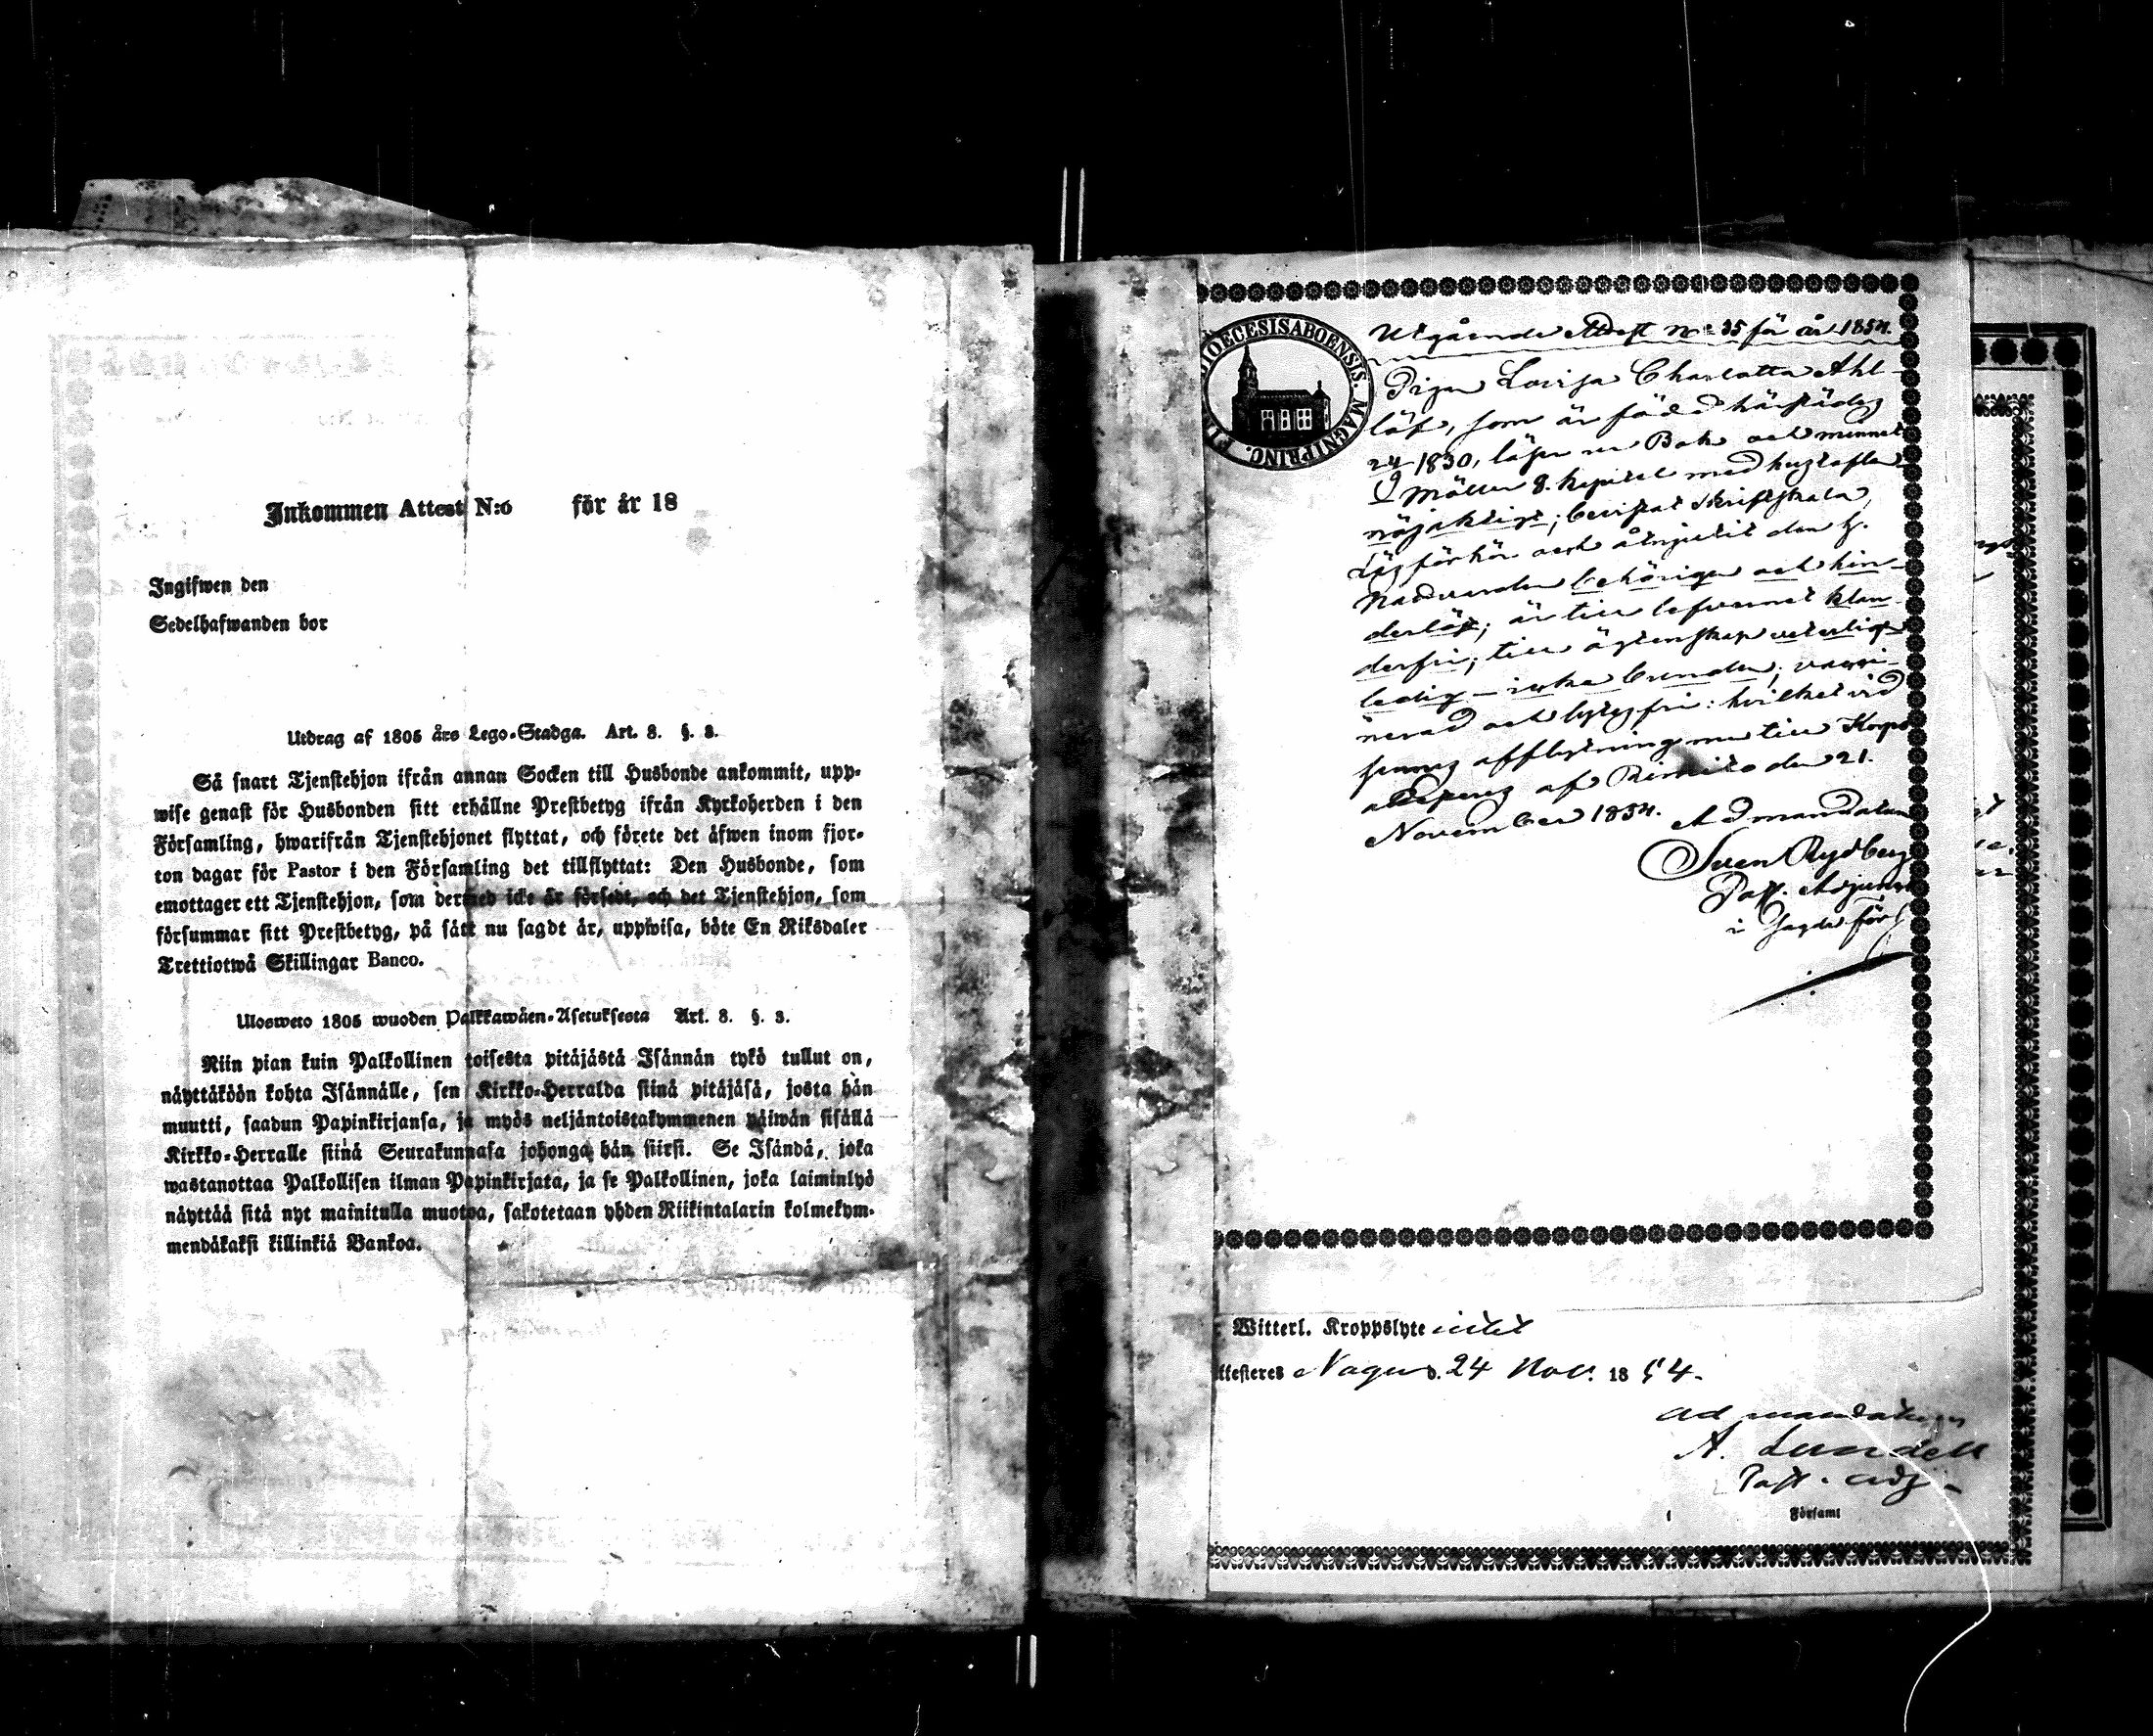 Inkommen Attest N:o för år 18
Ingifwen den
Sedelhafwanden bor
Utdrag af 1805 års Lego-Stadga. Art. 8. §. 3.
Så snart Tjenstehjon ifrån annan Socken till Husbonde ankommit, upp-
wise genast för Husbonden sitt erhållne Prestbetyg ifrån Kyrkoherden i den
Församling, hwarifrån Tjenstehjonet flyttat, och förete det äfwen inom fjor-
ton dagar för Pastor i den Församling det tillflyttat: Den Husbonde, som
emottager ett Tjenstehjon, som dermed icke är försedt, och det Tjenstehjon, som
försummar sitt Prestbetyg, på sätt nu sagdt är, uppwisa, böte En Riksdaler
Trettiotwå Skillingar Banco.
Ulosweto 1805 wuoden Palkkawäen-Asetuksesta Art. 8. §. 3.
Niin pian kuin Palkollinen toisesta pitäjästä Isännän tykö tullut on,
näyttäköön kohta Isännälle, sen Kirkko-Herralda siinä pitäjäsä, josta hän
muutti, saadun Papinkirjansa, ja myös neljäntoistakymmenen päiwän sisällä
Kirkko-Herralle siinä Seurakunnasa johonga hän siirsi. Se Isändä, joka
wastanottaa Palkollisen ilman Papinkirjata, ja se Palkollinen, joka laiminlyö
näyttää sitä nyt mainitulla muotoa, sakotetaan yhden Riikintalarin kolmekym-
mendäkaksi killinkiä Bankoa.
DIOECESISABOENSIS. MAGNIPRINC. FIN
Utgående Attest No 35 för år 1854.
Pigan Lovisa Charlotta Ahl-
löf, som är född härstädes
24/9 1830, läser i Bok och minnet
Möller 8. kapitel med hustaflan
nöjaktigt; bevistat Skriftskola,
Läsförhör och åtnjutit den H.
Nattvarden behörigen och hin-
derlöst; är till lefvernet klan-
derfri; till ägtenskap veterligt
ledig – icke bunden; vacci-
nerad och lytesfri: hvilket vid
hennes afflyttning nu till Korpo
attesteras af Rimito den 21.
November 1854. Ad mandatum
Sven Rydberg
Past. Adjunct
i sagde förs
Witterl. Kroppslyte intet
ttesteres Nagu d. 24 Nov. 18 54.
ad mandatum
A. Lundell
Past. adj.
i Församl